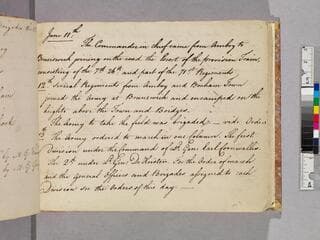 June 11th
The Commander in Chief came from Amboy to
Brunswick joining on the road the Escort of the provision Train,
consisting of the 7th 26th and part of the 71st Regiments
12th Several Regiments from Amboy and Bonham Town
joined the Army at Brunswick and encamped on the
heights above the Town and Bridge.
The Army to take the field was brigaded; — vide Orders
The Army ordered to march in one Column. The first
Division under the Command of Lt. Gen. Earl Cornwallis
The 2d under Lt. Gen. De Heister. For the Order of march
and the General Officers and Brigades assigned to each
Division See the Orders of this day. —